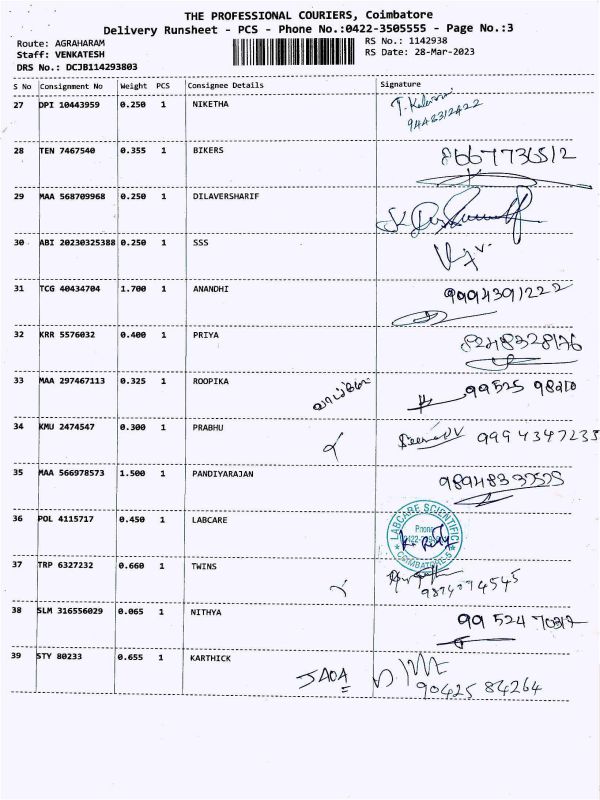 THE PROFESSIONAL COURIERS, Coimbatore
Delivery Runsheet - PCS - Phone No.:0422-3505555 - Page No.:3
Route: AGRAHARAM
RS No.: 1142938
Staff: VENKATESH
RS Date: 28-Mar-2023
DRS No.: DCJB114293803
S No Consignment No Weight PCS Consignee Details Signature
27 DPI 10443959 0.250 1 NIKETHA
9448312422
28 TEN 7467540 0.355 1 BIKERS 8667736512
29 MAA 568709968 0.250 1 DILAVERSHARIF
30 ABI 20230325388 0.250 1 SSS
31 TCG 40434704 1.700 1 ANANDHI 9994391222
32 KRR 5576032 0.400 1 PRIYA 8248328176
33 MAA 297467113 0.325 1 ROOPIKA 99525
34 KMU 2474547 0.300 1 PRABHU 9994347235
35 MAA 566978573 1.500 1 PANDIYARAJAN
36 POL 4115717 0.450 1 LABCARE LABCARE SCIENTIFIC
Phone
COIMBATORE-5
37 TRP 6327232 0.660 1 TWINS
38 SLM 316556029 0.065 1 NITHYA 99 524
39 STY 80233 0.655 1 KARTHICK
90425 84264